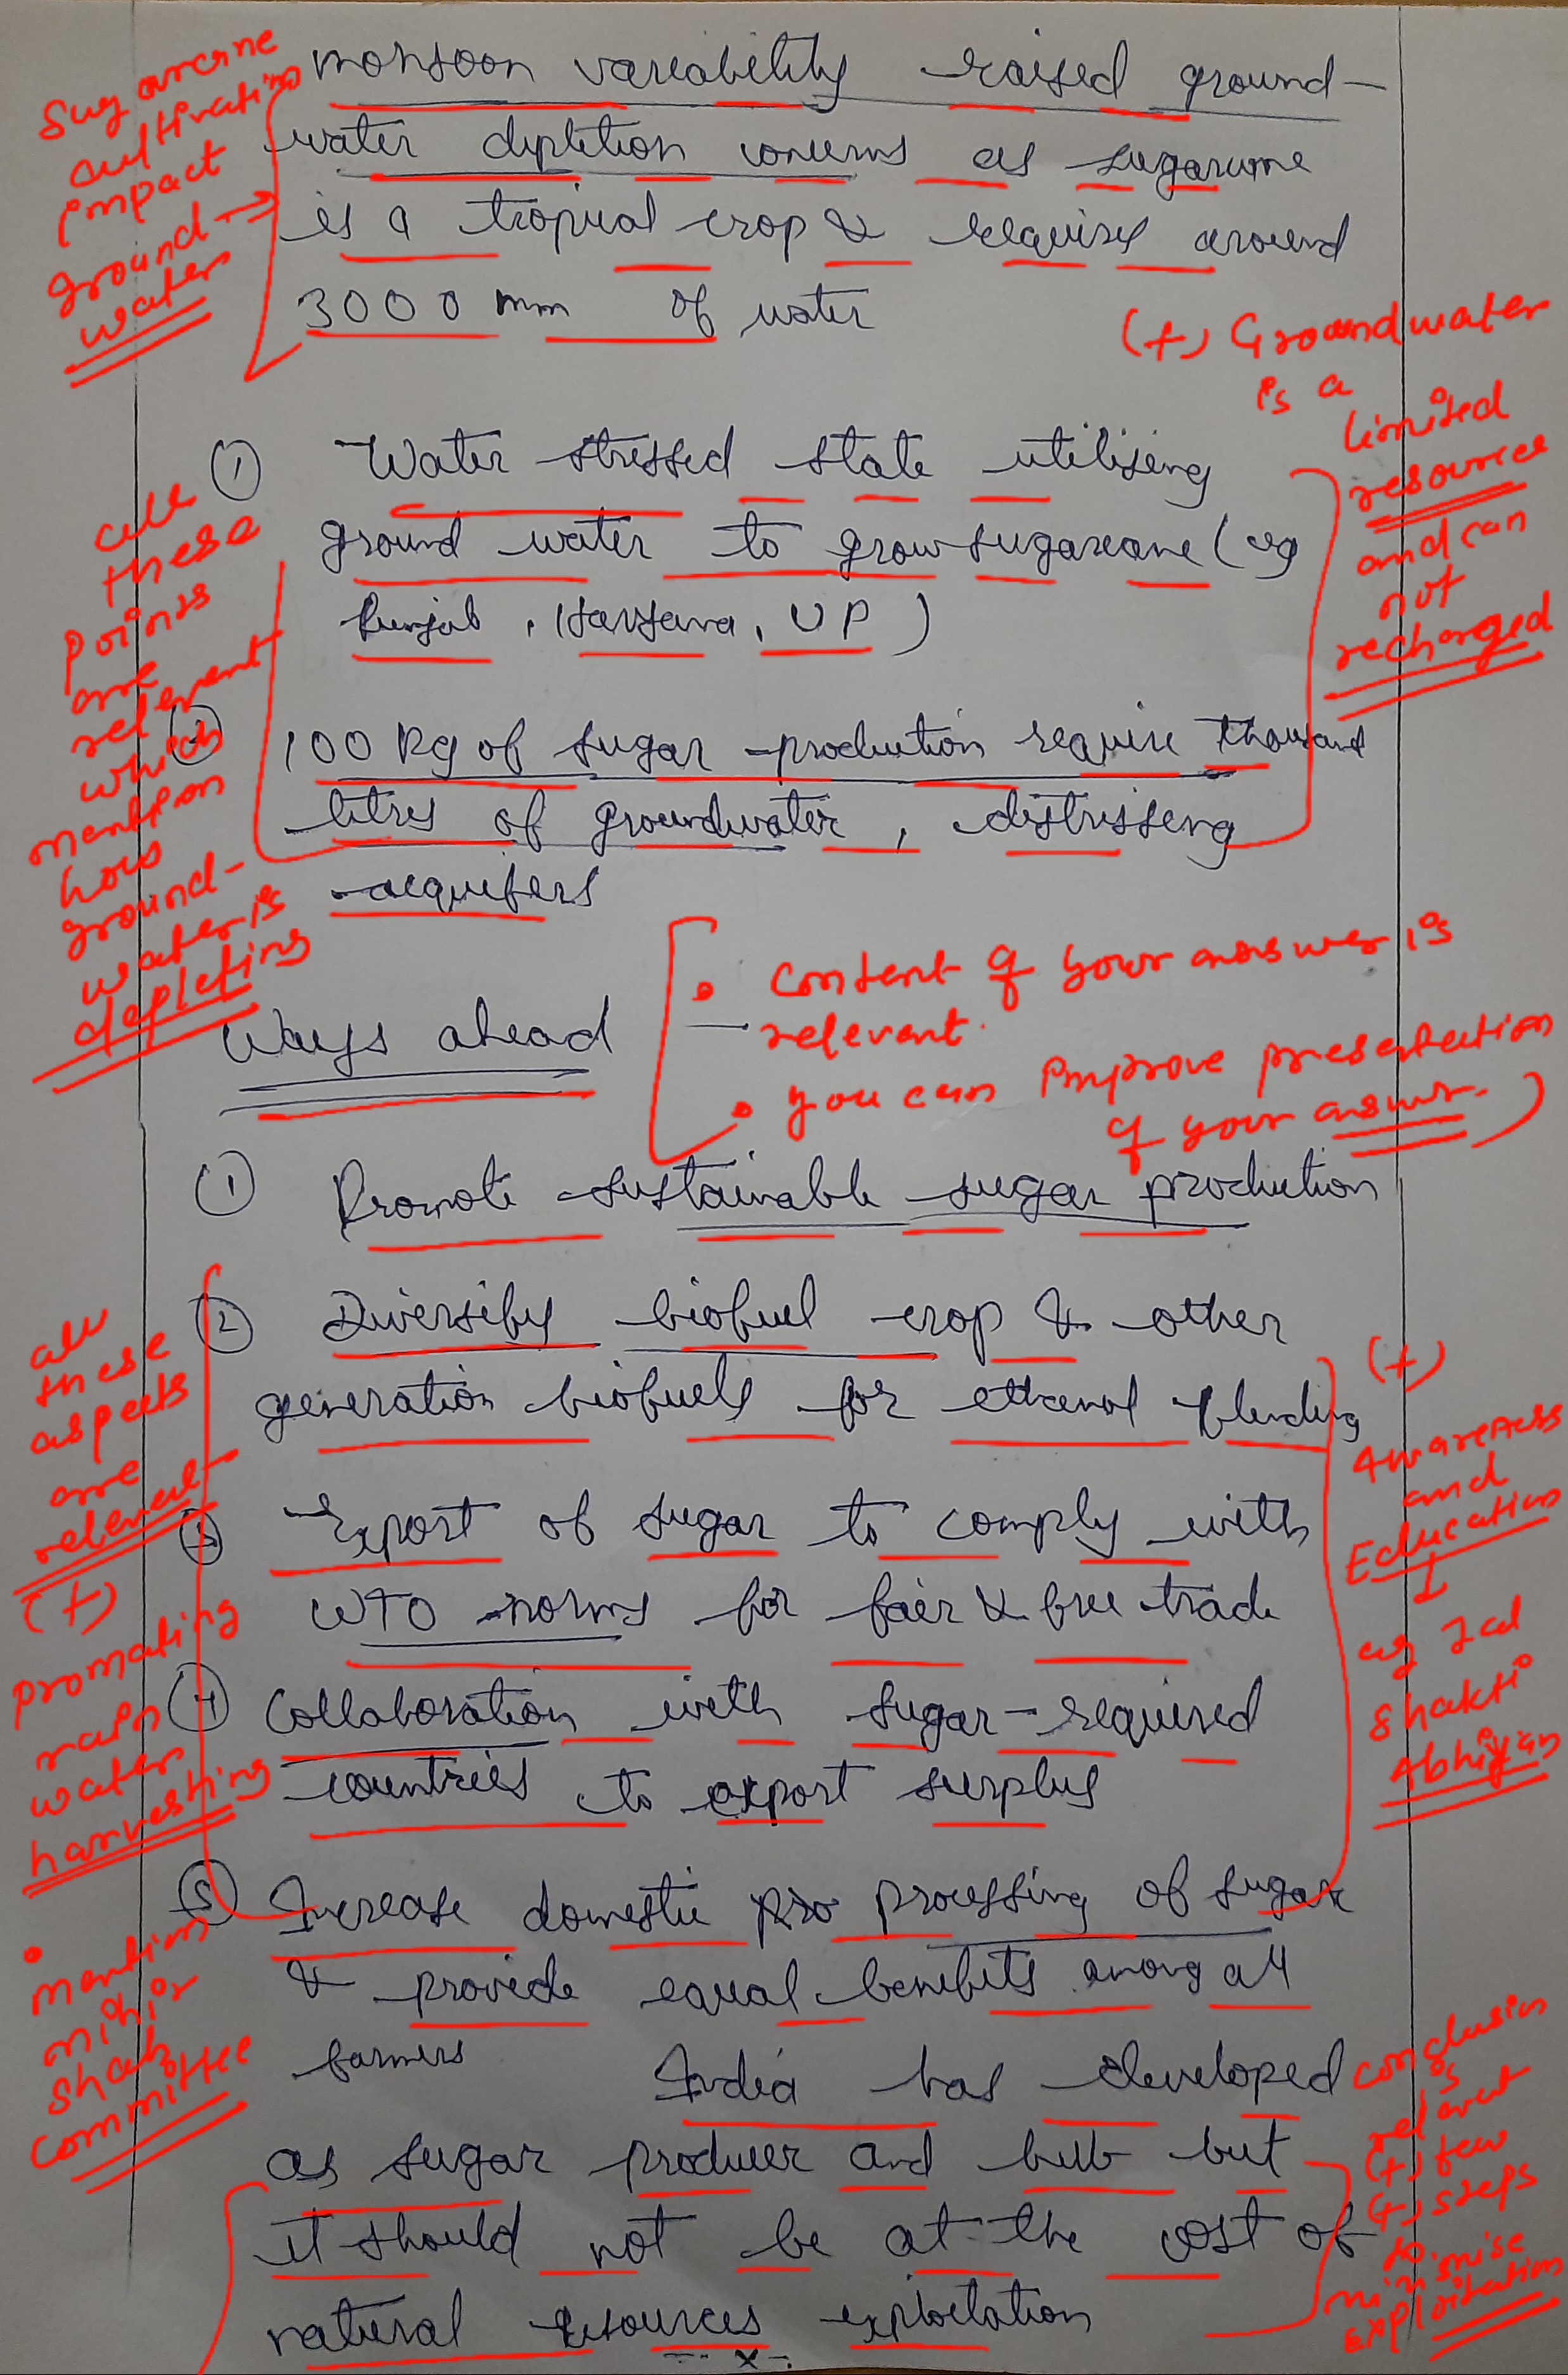 Sugarcane
cultivation
impact
ground
water
monsoon variability raised ground-
water depletion concerns as sugarcane
is a tropical crop & requires around
3000 mm of water
(+) Groundwater
is a
limited
resources
and can
not
recharged
① Water stressed state utilising
ground water to grow sugarcane (eg
Punjab, Haryana, UP)
② 100 kg of sugar production require thousand
litres of groundwater, distressing
acquifers
all
these
points
are
relevent
which
mention
how
ground-
water is
depleting
• Content of your answer is
relevent.
• you can improve presentation
of your answer.
Ways ahead
① Promote sustainable sugar production
② Diversify biofuel crop & other
generation biofuels for ethanol blending
③ Export of sugar to comply with
WTO norms for fair & free trade
④ Collaboration with sugar-required
countries to export surplus
⑤ Increase domestic pro processing of sugar
& provide equal benefits among all
farmers
all
these
aspects
are
relevent
(+)
promating
rain
water
harvesting
• mention
mihir
shah
committee
(+)
Awareness
and
Education
eg Jal
Shakti
Abhiyan
India has developed
as sugar producer and hub but
it should not be at the cost of
natural resources exploitation
x
conclusion
is
relevent
(+) few
(+) steps
to
minimise
exploitation